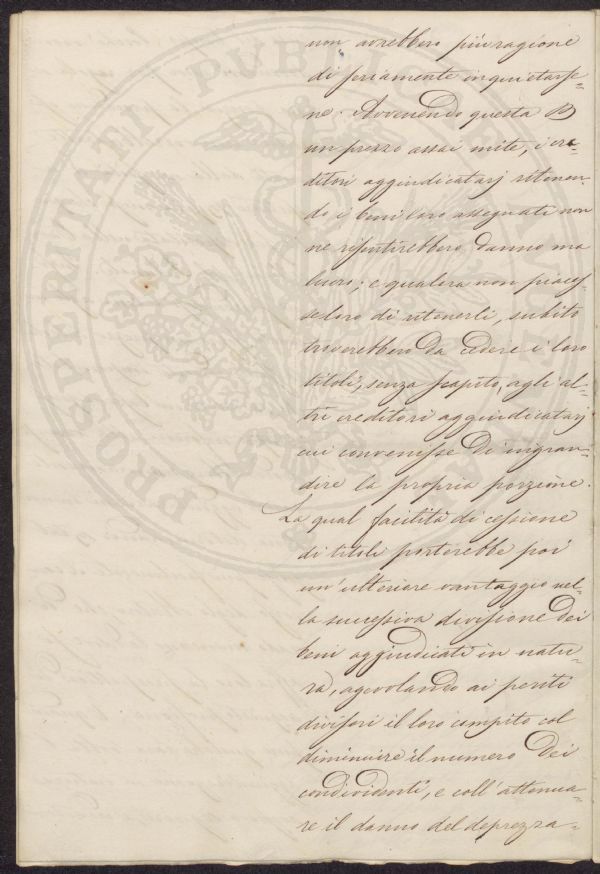 non avrebbero più ragione
di seriamente inquietarse=
ne. Avvenendo questa
un prezzo assai mite, i cre=
ditori aggiudicatarj ritenen=
do i beni loro assegnati non
ne risentirebbero danno ma
lucro; e qualora non piaces=
se loro di ritenerli, subito
troverebbero da cedere i loro
titoli, senza scapito, agli al=
tri creditori aggiudicatarj
cui convenisse di ingran=
dire la propria porzione.
La qual facilità di cessione
di titoli porterebbe poi
un'ulteriore vantaggio nel=
la successiva divisione dei
beni aggiudicati in natu=
ra, agevolando ai periti
divisori il loro compito col
diminuire il numero dei
condividenti, e coll'attenua=
re il danno del deprezza=
PROSPERITATI PUBLICÆ